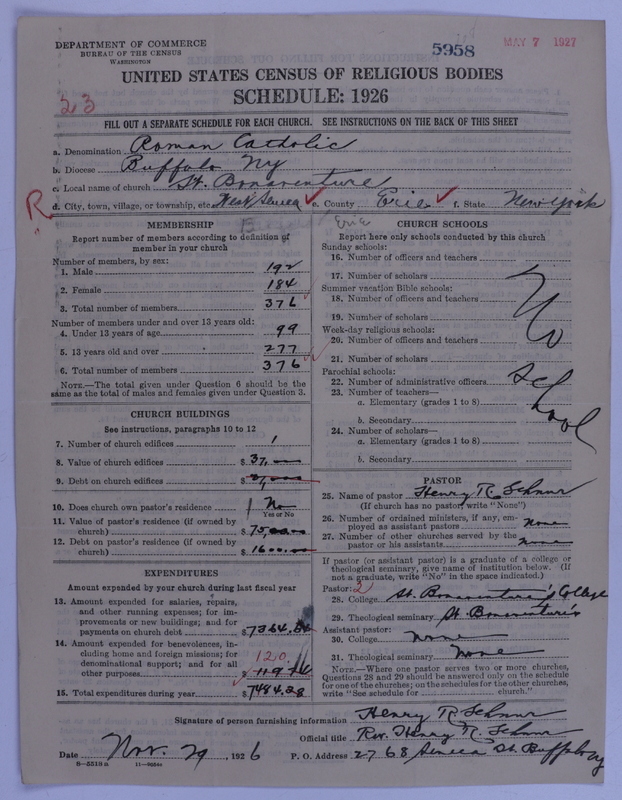 DEPARTMENT OF COMMERCE
BUREAU OF THE CENSUS
WASHINGTON
5958
MAY 7 1927
UNITED STATES CENSUS OF RELIGIOUS BODIES
SCHEDULE: 1926
23
FILL OUT A SEPARATE SCHEDULE FOR EACH CHURCH. SEE INSTRUCTIONS ON THE BACK OF THIS SHEET
a. Denomination Roman Catholic
b. Diocese Buffalo NY
c. Local name of church St. Bonaventure
R d. City, town, village, or township, etc. West Seneca e. County Erie f. State New York
Erie
MEMBERSHIP
Report number of members according to definition of
member in your church
Number of members, by sex:
1. Male 192
2. Female 184
3. Total number of members 376
Number of members under and over 13 years old:
4. Under 13 years of age 99
5. 13 years old and over 277
6. Total number of members 376
NOTE.—The total given under Question 6 should be the
same as the total of males and females given under Question 3.
CHURCH BUILDINGS
See instructions, paragraphs 10 to 12
7. Number of church edifices 1
8. Value of church edifices $ 37,
9. Debt on church edifices $
10. Does church own pastor's residence No
Yes or No
11. Value of pastor's residence (if owned by
church) $
12. Debt on pastor's residence (if owned by
church) $ 1600.00
EXPENDITURES
Amount expended by your church during last fiscal year
13. Amount expended for salaries, repairs,
and other running expenses; for im-
provements or new buildings; and for
payments on church debt $ 7364.
14. Amount expended for benevolences, in-
cluding home and foreign missions; for
denominational support; and for all
other purposes $ 120.
15. Total expenditures during year $ 7484.28
CHURCH SCHOOLS
Report here only schools conducted by this church
Sunday schools:
16. Number of officers and teachers
17. Number of scholars
Summer vacation Bible schools:
18. Number of officers and teachers
19. Number of scholars
Week-day religious schools:
20. Number of officers and teachers
21. Number of scholars
Parochial schools:
22. Number of administrative officers
23. Number of teachers—
a. Elementary (grades 1 to 8)
b. Secondary
24. Number of scholars—
a. Elementary (grades 1 to 8)
b. Secondary
No
School
PASTOR
25. Name of pastor Henry R. Schnur
(If church has no pastor, write "None")
26. Number of ordained ministers, if any, em-
ployed as assistant pastors None
27. Number of other churches served by the
pastor or his assistants None
If pastor (or assistant pastor) is a graduate of a college or
theological seminary, give name of institution below. (If
not a graduate, write "No" in the space indicated.)
Pastor: 2
28. College St. Bonaventure's College
29. Theological seminary St. Bonaventure's
Assistant pastor:
30. College none
31. Theological seminary None
NOTE.—Where one pastor serves two or more churches,
Questions 28 and 29 should be answered only on the schedule
for one of the churches; on the schedules for the other churches,
write "See schedule for church."
Signature of person furnishing information Henry R. Schnur
Official title Rev. Henry R. Schnur
Date Nov. 29, 1926 P. O. Address 2768 Seneca St. Buffalo NY
8—5518a 11—9864c